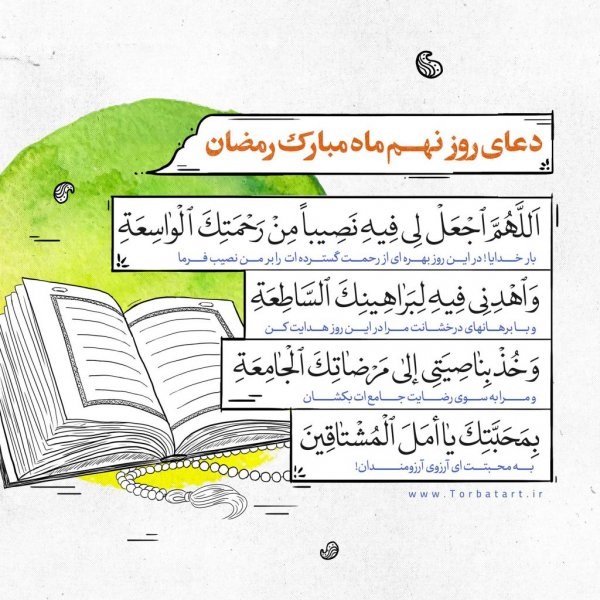 دعای روز نهم ماه مبارک رمضان
اَللّٰهُمَّ ٱجْعَلْ لِی فِیهِ نَصِیباً مِنْ رَحْمَتِكَ ٱلْوٰاسِعَةِ
بار خدایا! در این روز بهره ای از رحمت گسترده ات را بر من نصیب فرما
وَٱهْدِنِی فِیهِ لِبَرٰاهِینِكَ ٱلسّٰاطِعَةِ
و با برهانهای درخشانت مرا در این روز هدایت کن
وَخُذْ بِنٰاصِیَتِی إِلیٰ مَرْضٰاتِكَ ٱلْجٰامِعَةِ
و مرا به سوی رضایت جامع ات بکشان
بِمَحَبَّتِكَ یٰا أَمَلَ ٱلْمُشْتٰاقِینَ
به محبتت ای آرزوی آرزومندان!
www.Torbatart.ir